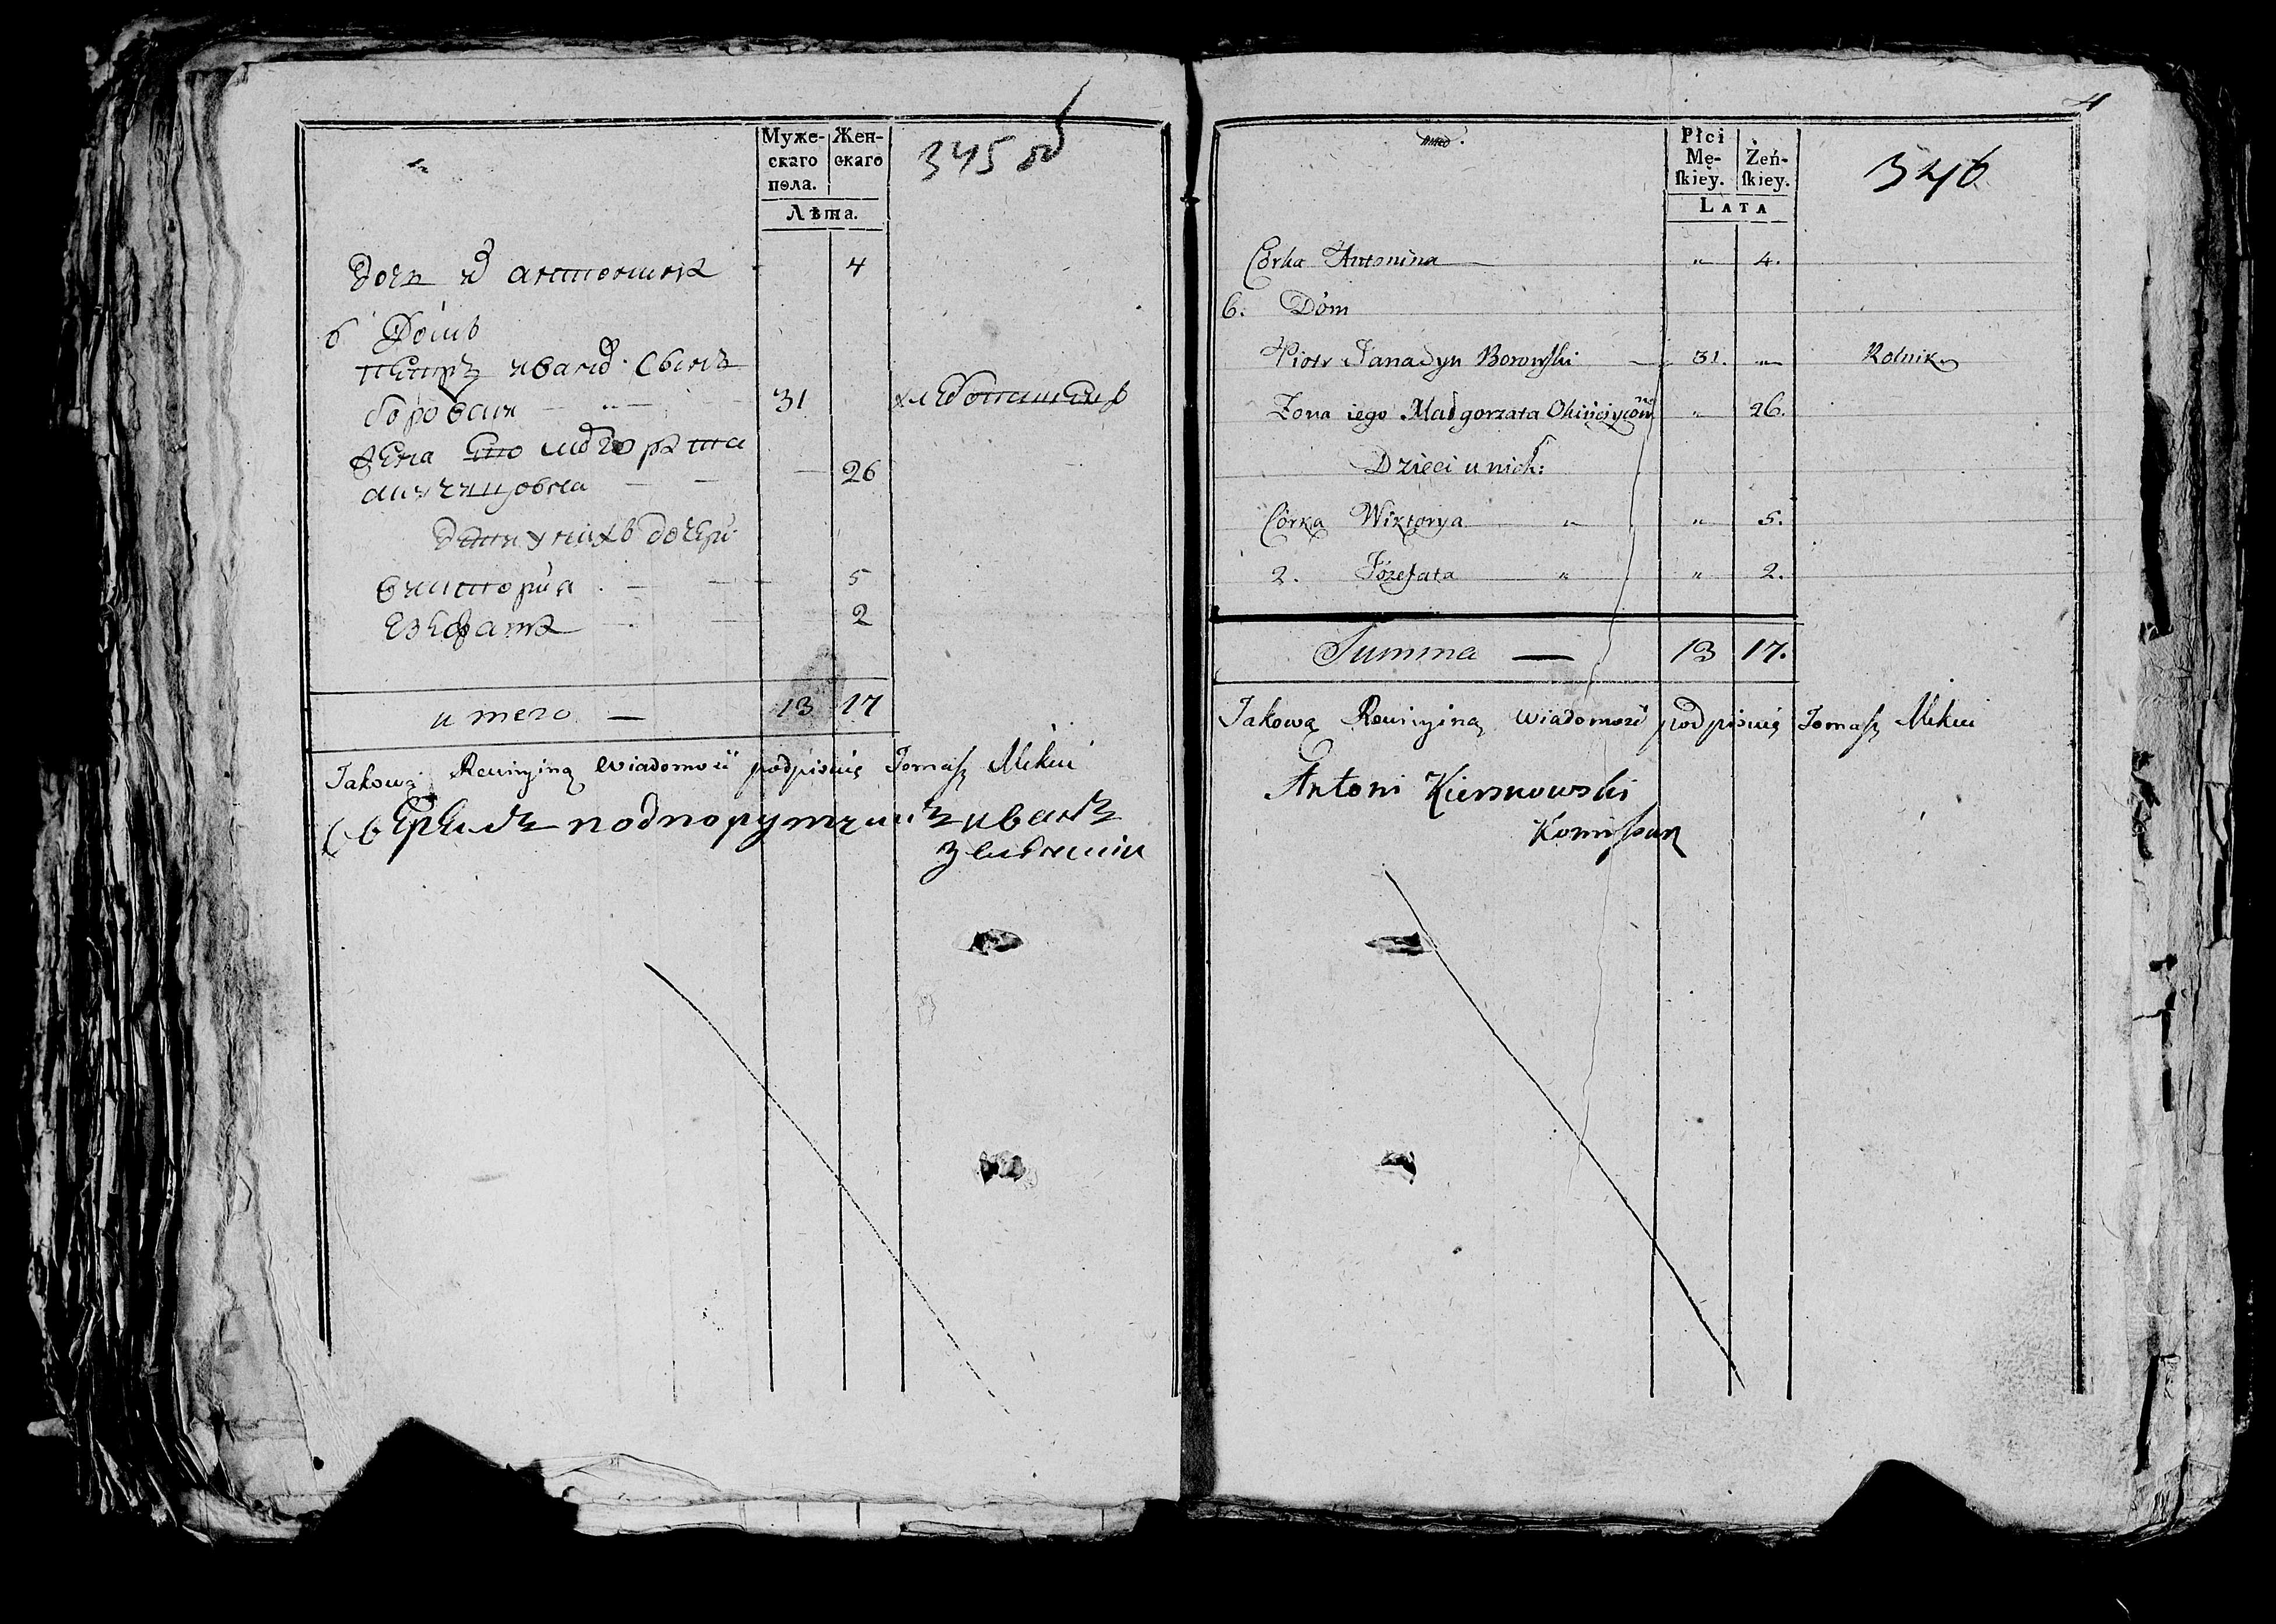 Муже-
скаго
пола.
Жен-
скаго
Лѣта.
345 об
дочь антонина 4
6 Домъ
петръ иванов. сынъ
боровски 31 хлебопашец
жена его
26
дети у нихъ дочери
викториа 5
езефата 2
итого — 13 17
Jakową Rewizyiną wiadomość podpisuię Tomasz
порутчикъ иванъ
4
Płci
Mę-
ſkiey.
Żeń-
ſkiey.
LATA
346
Córka Antonina „ 4.
6. Dóm
Piotr Jana Syn Borowſki — 31. „ Rolnik
Żona iego Małgorzata „ 26.
Dzieci u nich:
Córka Wiktorya „ „ 5.
2. Józefata „ „ 2.
Summa — 13 17.
Jakową Rewizyiną wiadomość podpisuię Tomasz
Antoni Kiersnowski
Komiſsarz